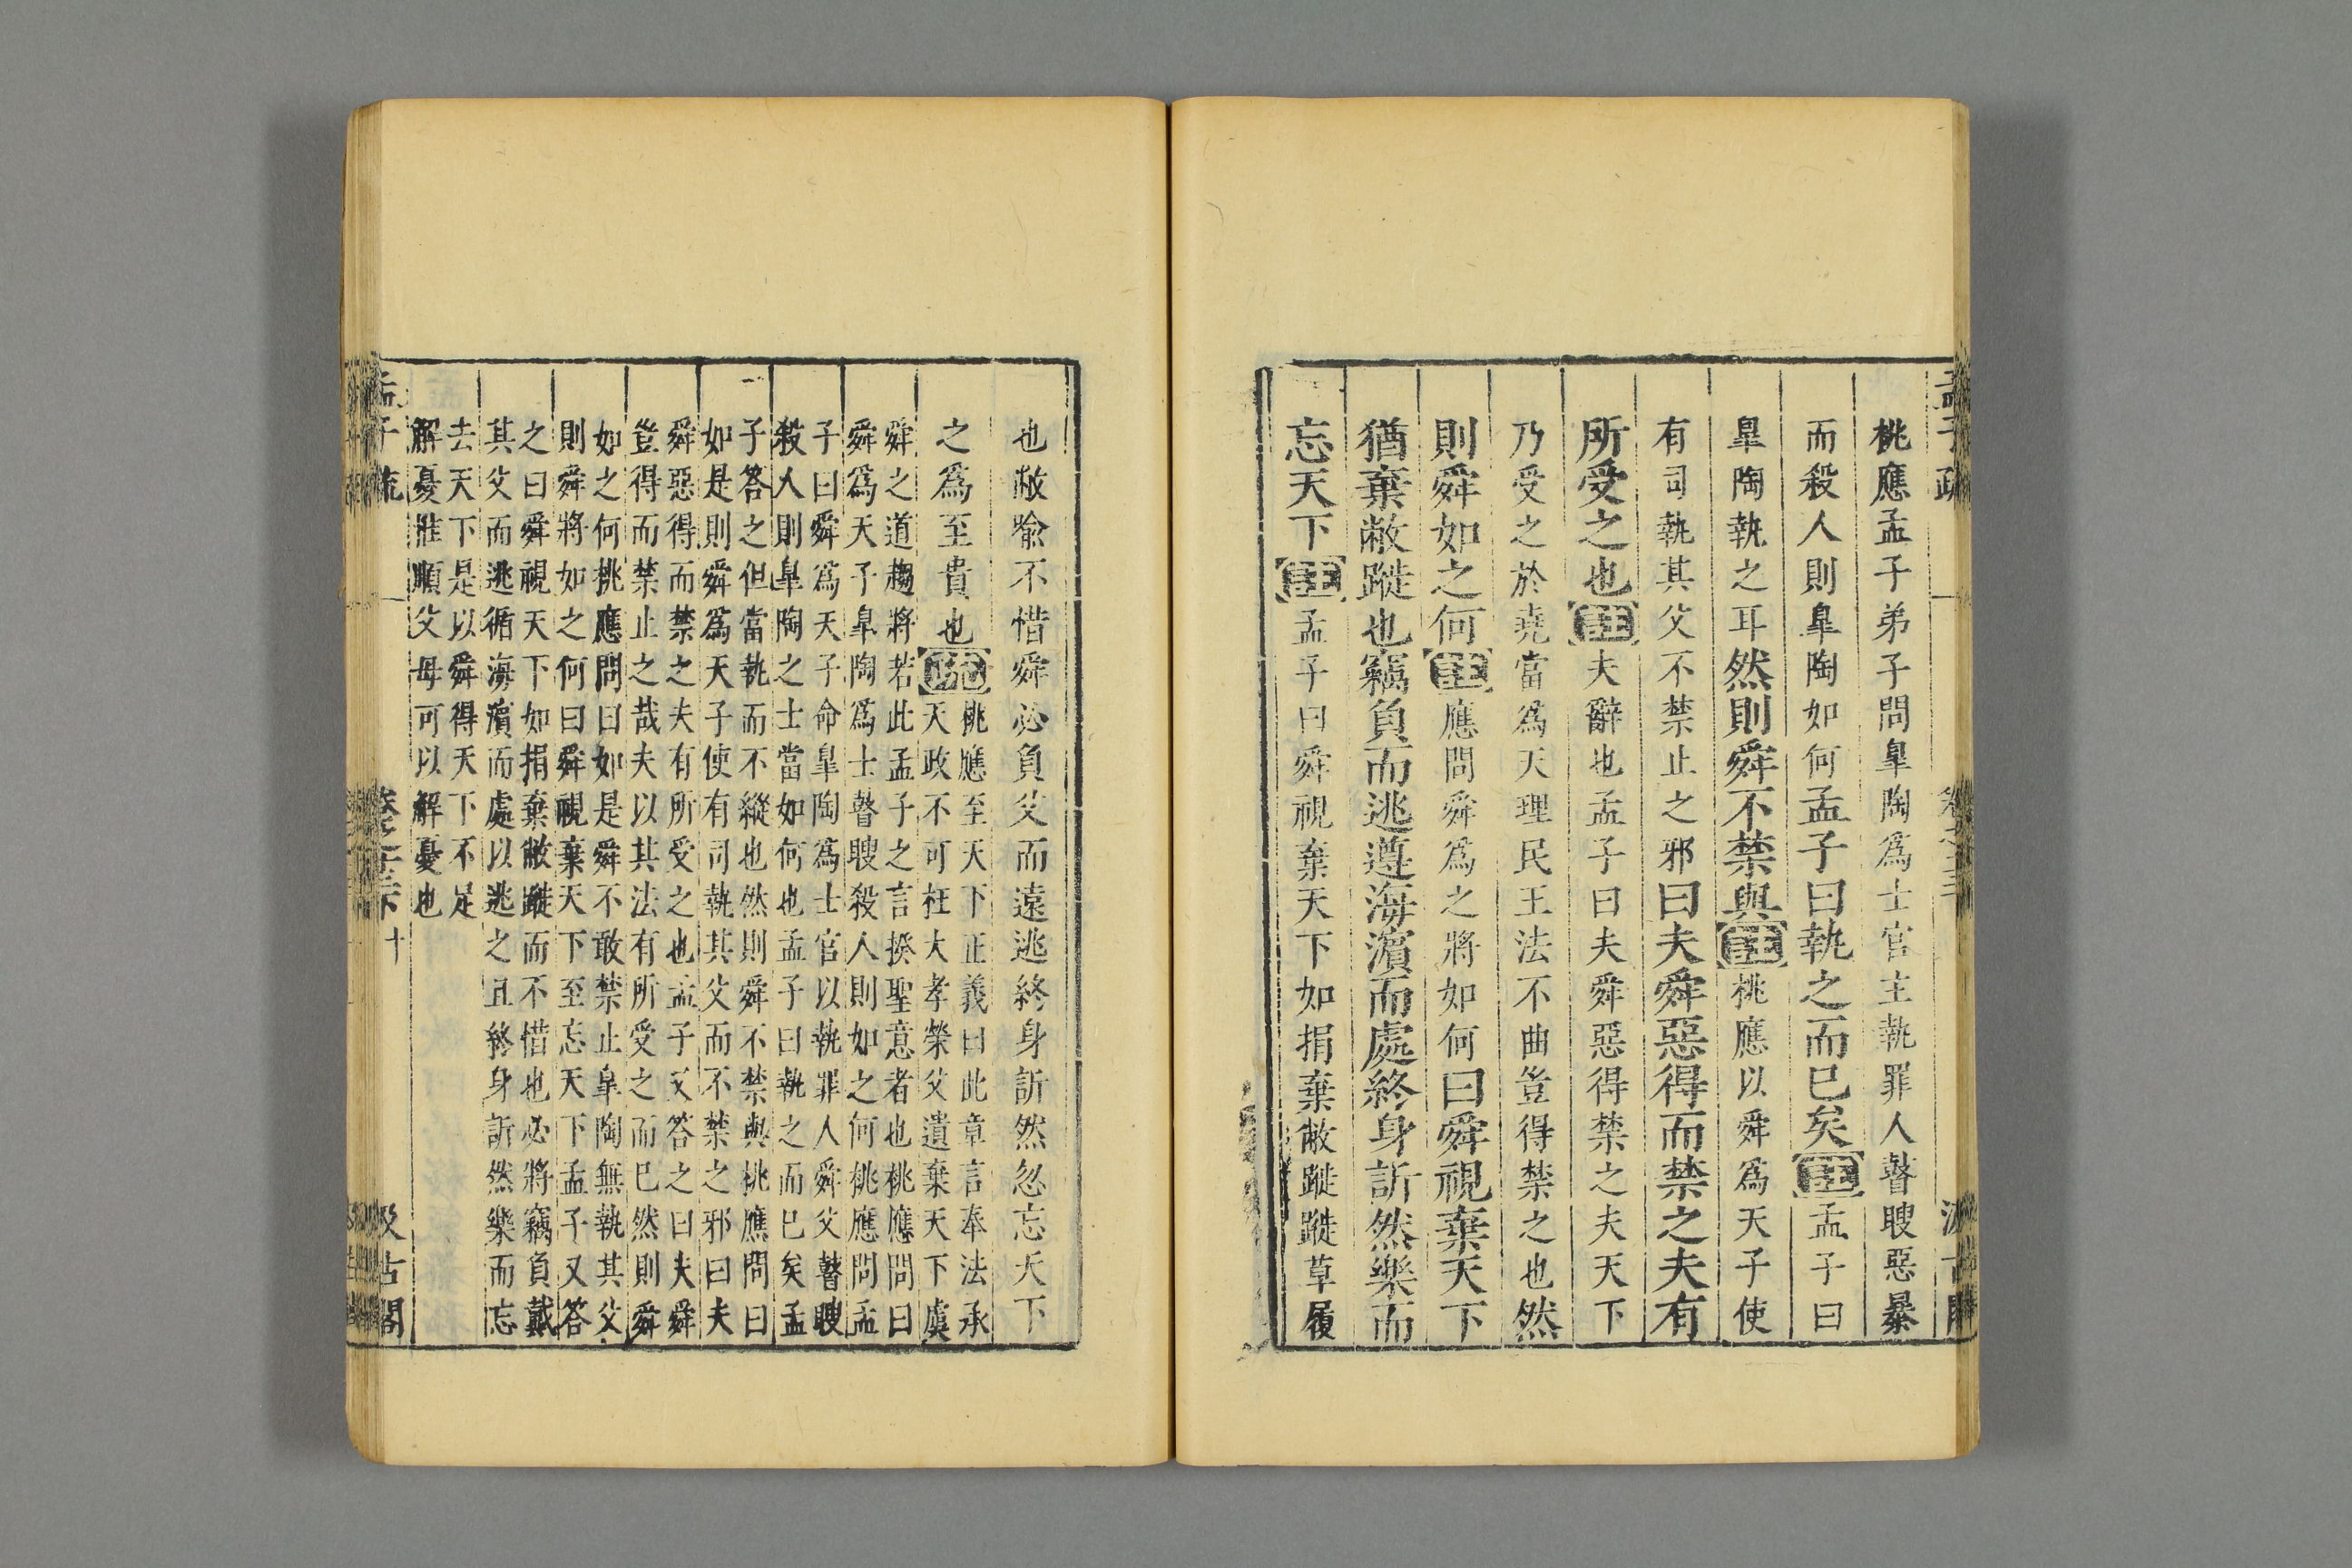 孟子疏
桃應孟子弟子問皐陶爲士官主執罪人瞽瞍惡暴
而殺人則皐陶如何孟子曰執之而已矣註孟子曰
皐陶執之耳然則舜不禁與註桃應以舜爲天子使
有司執其父不禁止之邪曰夫舜惡得而禁之夫有
所受之也註夫辭也孟子曰夫舜惡得禁之夫天下
乃受之於堯當爲天理民王法不曲豈得禁之也然
則舜如之何註應問舜爲之將如何曰舜視棄天下
猶棄敝蹝也竊負而逃遵海濵而處終身訢然樂而
忘天下註孟子曰舜視棄天下如捐棄敝蹝蹝草履
也敝喻不惜舜必負父而遠逃終身訢然忽忘天下
之爲至貴也疏
桃應至天下正義曰此章言奉法承
天政不可枉大孝榮父遺棄天下虞
舜之道趨將若此孟子之言揆聖意者也桃應問曰
舜爲天子皐陶爲士瞽瞍殺人則如之何桃應問孟
子曰舜爲天子命皐陶爲士官以執罪人舜父瞽瞍
殺人則皐陶之士當如何也孟子曰執之而已矣孟
子答之但當執而不縱也然則舜不禁與桃應問曰
如是則舜爲天子使有司執其父而不禁之邪曰夫
舜惡得而禁之夫有所受之也孟子又答之曰夫舜
豈得而禁止之哉夫以其法有所受之而已然則舜
如之何桃應問曰如是舜不敢禁止皐陶無執其父
則舜將如之何曰舜視棄天下至忘天下孟子又答
之曰舜視天下如捐棄敝蹝而不惜也必將竊負戴
其父而逃循海濵而處以逃之且終身訢然樂而忘
去天下是以舜得天下不足
解憂惟順父母可以解憂也
孟子疏
十
汲古閣